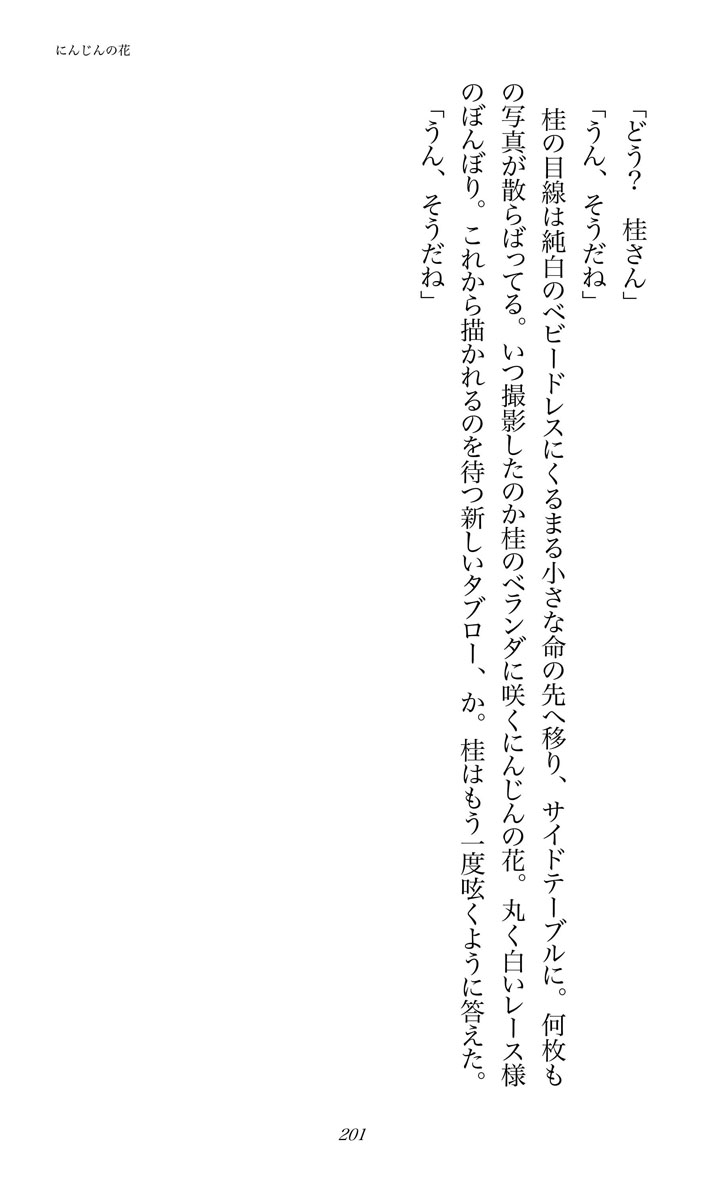 にんじんの花
「どう?　桂さん」
「うん、そうだね」
桂の目線は純白のベビードレスにくるまる小さな命の先へ移り、サイドテーブルに。何枚も
の写真が散らばってる。いつ撮影したのか桂のベランダに咲くにんじんの花。丸く白いレース様
のぼんぼり。これから描かれるのを待つ新しいタブロー、か。桂はもう一度呟くように答えた。
「うん、そうだね」
201